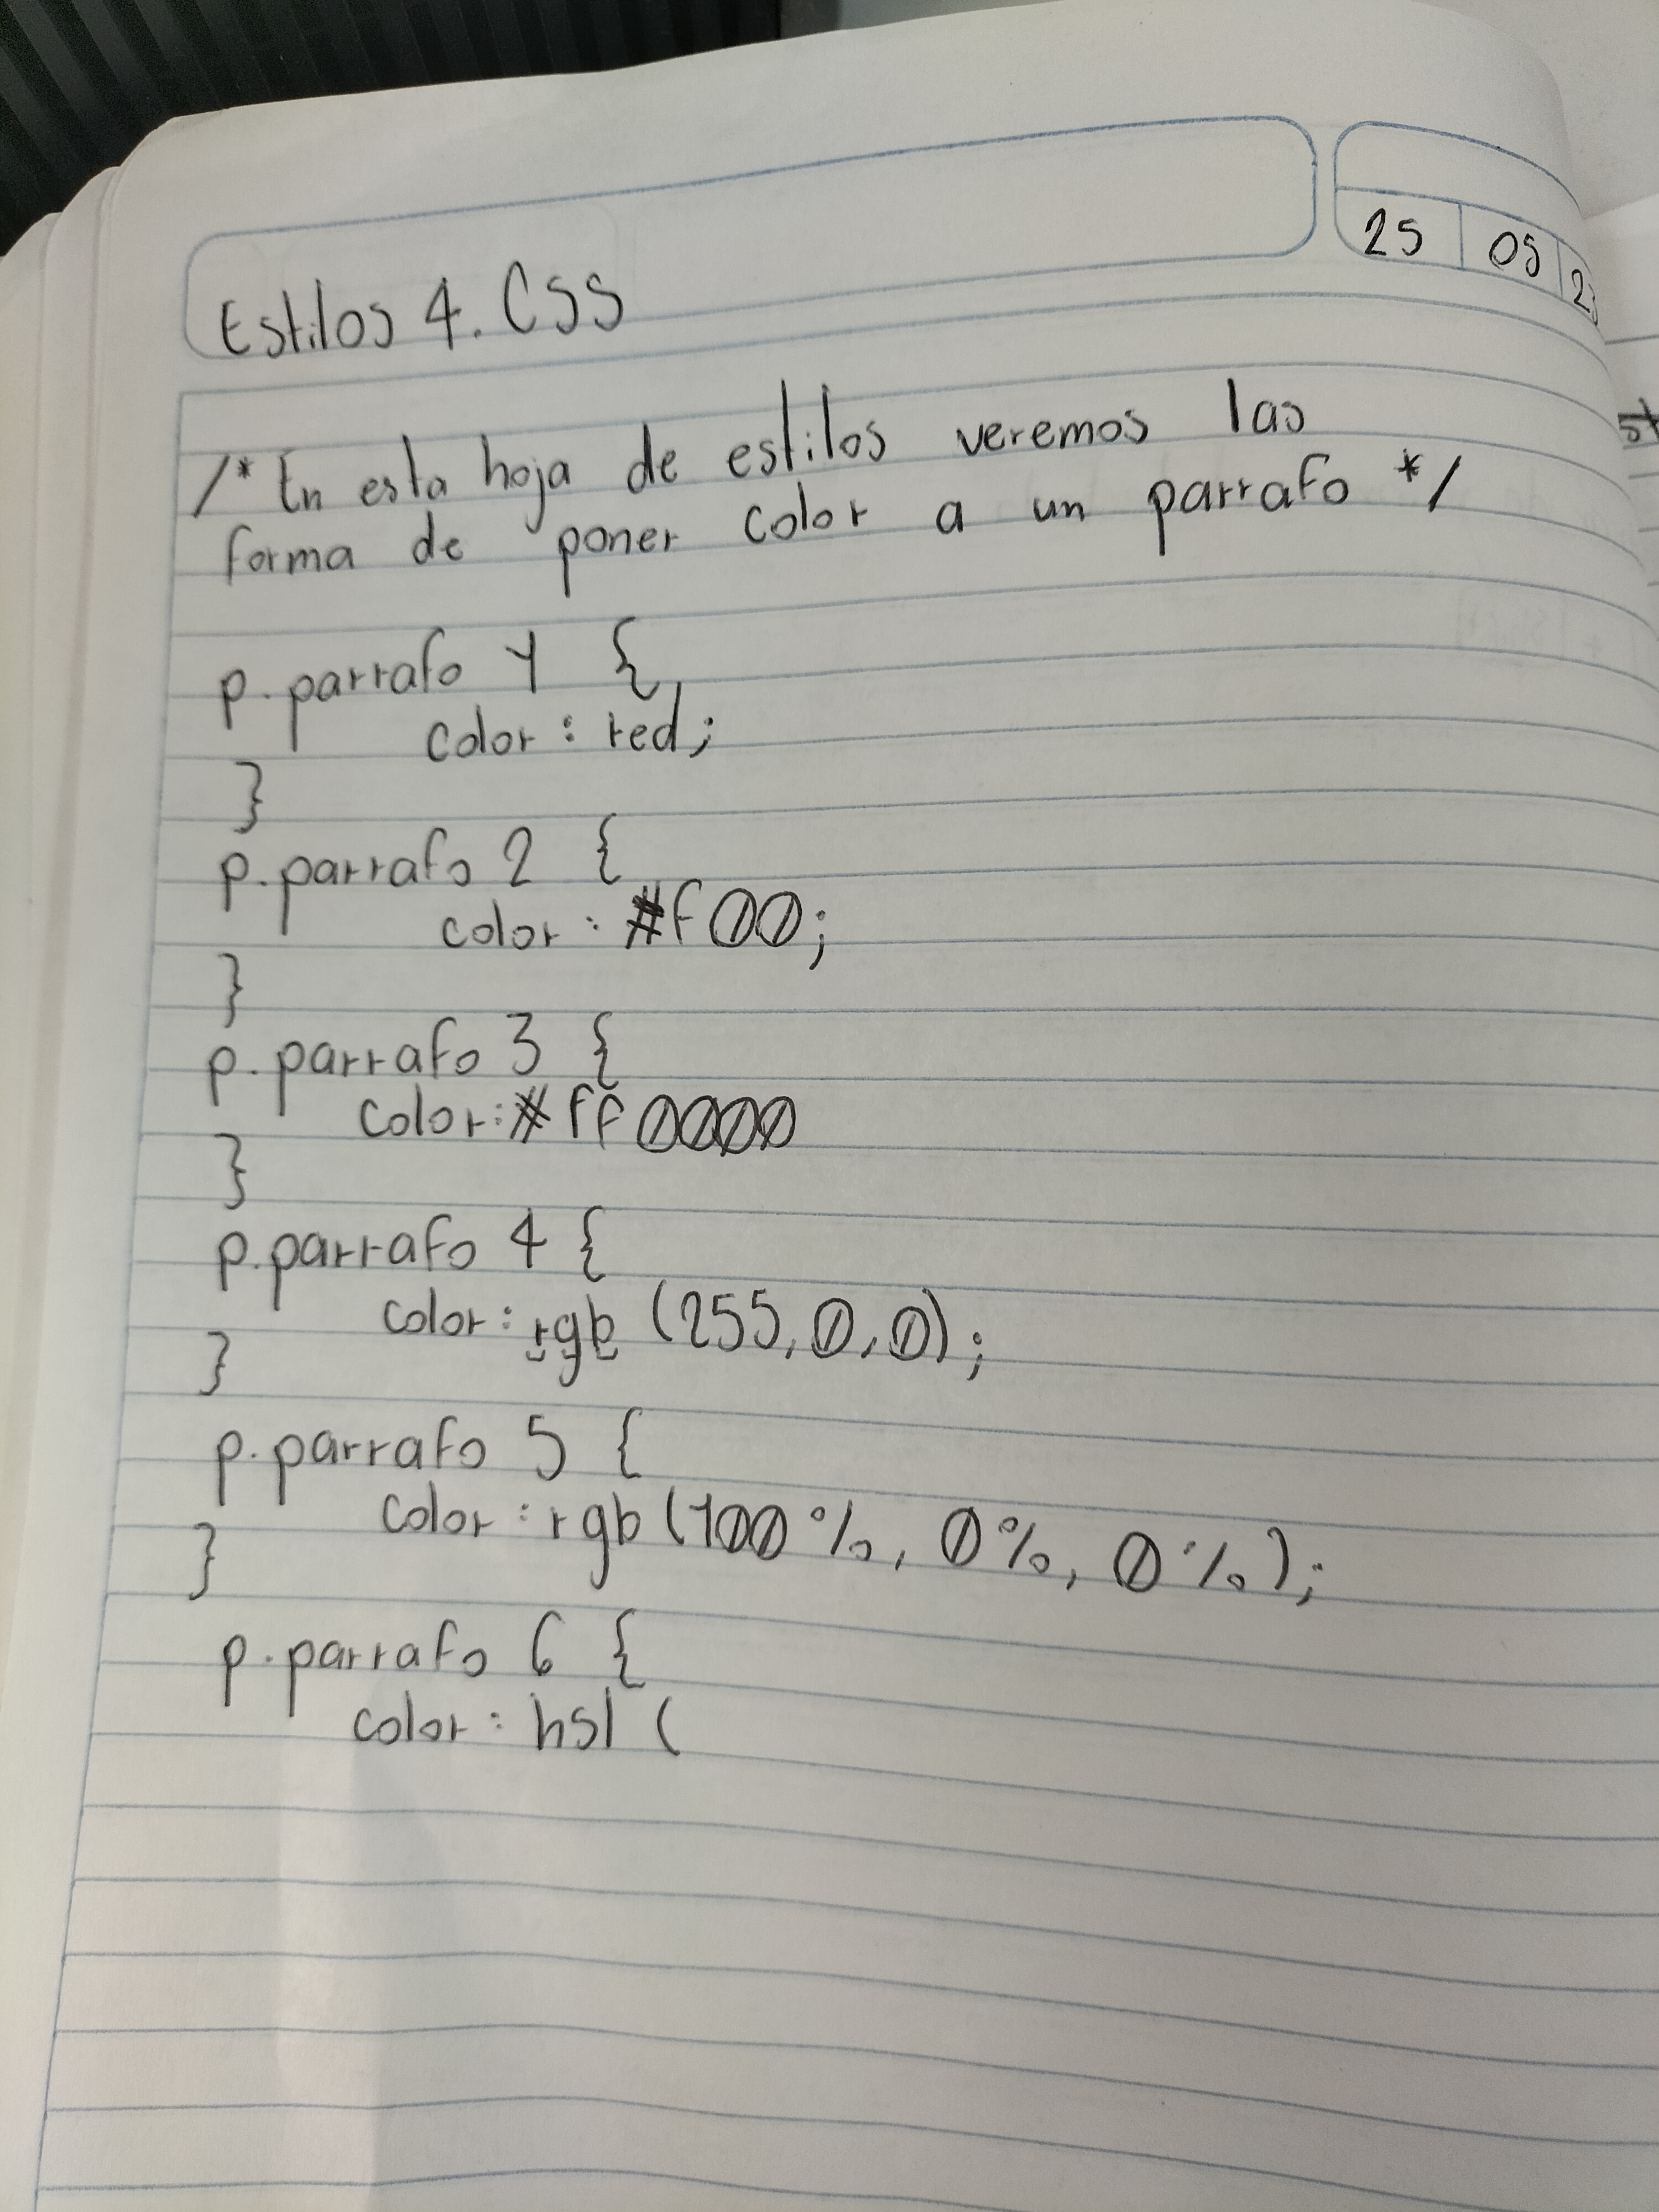 25 05 2
Estilos 4. CSS
/* En esta hoja de estilos veremos las
forma de poner color a un parrafo */
p.parrafo 1 {
color: red;
}
p.parrafo 2 {
color: #f00;
}
p.parrafo 3 {
color: #ff0000
}
p.parrafo 4 {
color: rgb (255, 0, 0);
}
p.parrafo 5 {
color: rgb (100%, 0%, 0%);
}
p.parrafo 6 {
color: hsl (